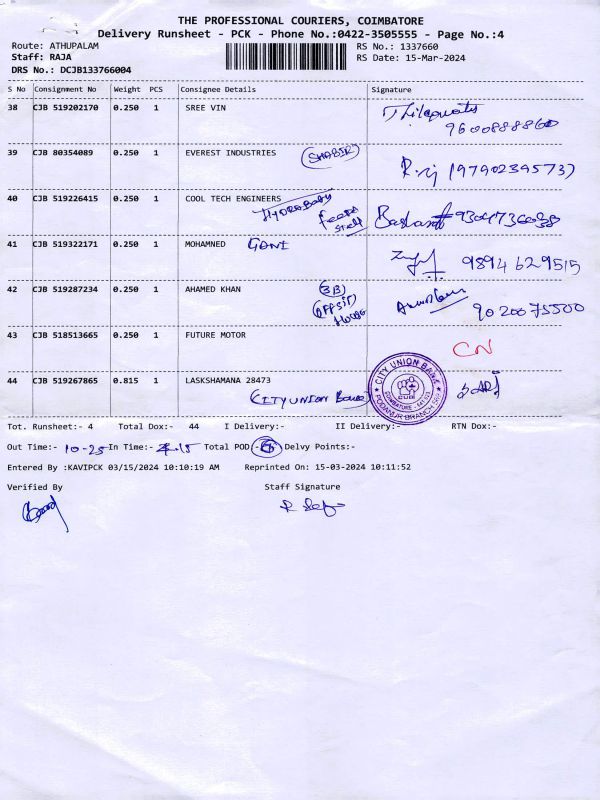 THE PROFESSIONAL COURIERS, COIMBATORE
Delivery Runsheet - PCK - Phone No.:0422-3505555 - Page No.:4
Route: ATHUPALAM RS No.: 1337660
Staff: RAJA RS Date: 15-Mar-2024
DRS No.: DCJB133766004
S No Consignment No Weight PCS Consignee Details Signature
38 CJB 519202170 0.250 1 SREE VIN
9600888860
39 CJB 80354089 0.250 1 EVEREST INDUSTRIES (SHABIR)
(9790239573)
40 CJB 519226415 0.250 1 COOL TECH ENGINEERS
41 CJB 519322171 0.250 1 MOHAMNED GANI
9894629515
42 CJB 519287234 0.250 1 AHAMED KHAN
9020075500
43 CJB 518513665 0.250 1 FUTURE MOTOR
CN
44 CJB 519267865 0.815 1 LASKSHAMANA 28473
CITY UNION BANK
CITY UNION BANK
CUB
COIMBATORE
PODANUR BRANCH
Tot. Runsheet:- 4 Total Dox:- 44 I Delivery:- II Delivery:- RTN Dox:-
Out Time:- 10-25 In Time:- Total POD:- Delvy Points:-
Entered By :KAVIPCK 03/15/2024 10:10:19 AM Reprinted On: 15-03-2024 10:11:52
Verified By Staff Signature